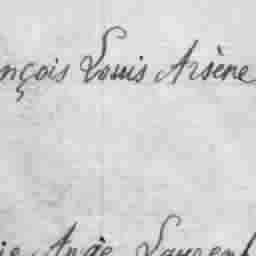 nçois Louis Arsène
ie Ange Laurent